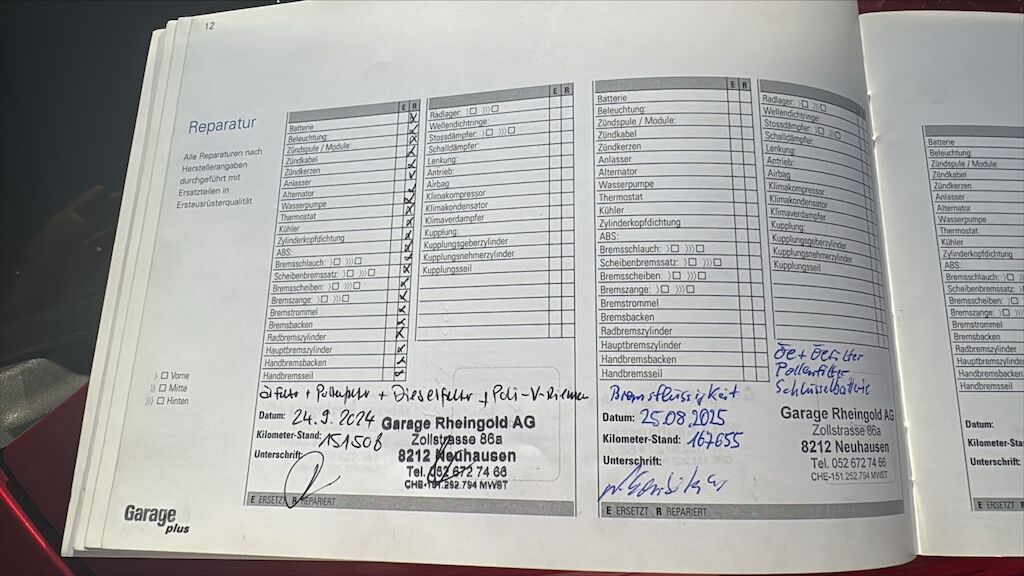 12
Reparatur
Alle Reparaturen nach
Herstellerangaben
durchgeführt mit
Ersatzteilen in
Erstausrüsterqualität
⟩ □ Vorne
⟩⟩ □ Mitte
⟩⟩⟩ □ Hinten
Garage
plus
E R
Batterie
Beleuchtung:
Zündspule / Module:
Zündkabel
Zündkerzen
Anlasser
Alternator
Wasserpumpe
Thermostat
Kühler
Zylinderkopfdichtung
ABS:
Bremsschlauch: ⟩□ ⟩⟩⟩□
Scheibenbremssatz: ⟩□ ⟩⟩⟩□
Bremsscheiben: ⟩□ ⟩⟩⟩□
Bremszange: ⟩□ ⟩⟩⟩□
Bremstrommel
Bremsbacken
Radbremszylinder
Hauptbremszylinder
Handbremsbacken
Handbremsseil
E R
Radlager: ⟩□ ⟩⟩⟩□
Wellendichtringe:
Stossdämpfer: ⟩□ ⟩⟩⟩□
Schalldämpfer:
Lenkung:
Antrieb:
Airbag
Klimakompressor
Klimakondensator
Klimaverdampfer
Kupplung
Kupplungsgeberzylinder
Kupplungsnehmerzylinder
Kupplungsseil
+ Dieselfilter + Poli-V-Riemen
Datum: 24.9.2024
Kilometer-Stand: 151508
Unterschrift:
Garage Rheingold AG
Zollstrasse 86a
8212 Neuhausen
Tel. 052 672 74 66
CHE-151.252.794 MWST
E ERSETZT R REPARIERT
E R
Batterie
Beleuchtung:
Zündspule / Module:
Zündkabel
Zündkerzen
Anlasser
Alternator
Wasserpumpe
Thermostat
Kühler
Zylinderkopfdichtung
ABS:
Bremsschlauch: ⟩□ ⟩⟩⟩□
Scheibenbremssatz: ⟩□ ⟩⟩⟩□
Bremsscheiben: ⟩□ ⟩⟩⟩□
Bremszange: ⟩□ ⟩⟩⟩□
Bremstrommel
Bremsbacken
Radbremszylinder
Hauptbremszylinder
Handbremsbacken
Handbremsseil
Radlager: ⟩□ ⟩⟩⟩□
Wellendichtringe:
Stossdämpfer: ⟩□ ⟩⟩⟩□
Schalldämpfer:
Lenkung:
Antrieb:
Airbag
Klimakompressor
Klimakondensator
Klimaverdampfer
Kupplung:
Kupplungsgeberzylinder
Kupplungsnehmerzylinder
Kupplungsseil
Öe + Öefilter
Pollenfilter
Schlüsselbatterie
Bremsflüssigkeit
Datum: 25.08.2025
Kilometer-Stand: 167655
Unterschrift:
Garage Rheingold AG
Zollstrasse 86a
8212 Neuhausen
Tel. 052 672 74 66
CHE-151.252.794 MWST
E ERSETZT R REPARIERT
Batterie
Beleuchtung:
Zündspule / Module:
Zündkabel
Zündkerzen
Anlasser
Alternator
Wasserpumpe
Thermostat
Kühler
Zylinderkopfdichtung
ABS:
Bremsschlauch: ⟩□
Scheibenbremssatz:
Bremsscheiben: ⟩□
Bremszange: ⟩□
Bremstrommel
Bremsbacken
Radbremszylinder
Hauptbremszylinder
Handbremsbacken
Handbremsseil
Datum:
Kilometer-Stand:
Unterschrift:
E ERSETZT